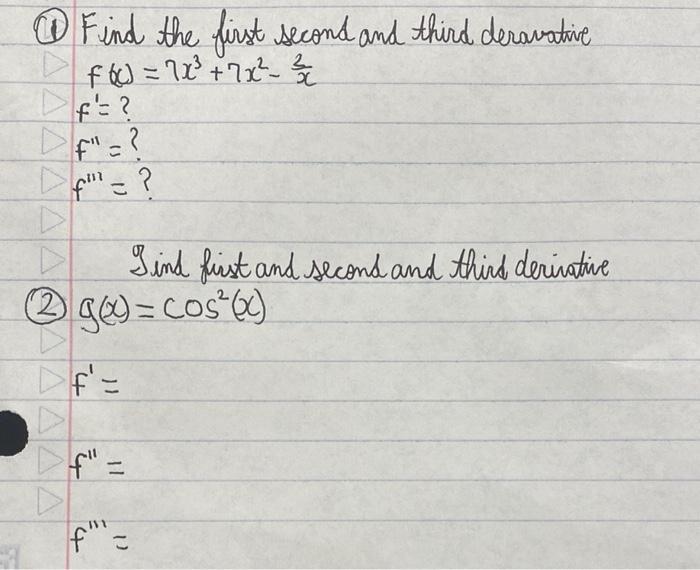 ① Find the first second and third deravative
f(x) = 7x³ + 7x² - 2/x
f' = ?
f" = ?
f''' = ?
Find first and second and third derivative
② g(x) = cos²(x)
f' =
f" =
f''' =